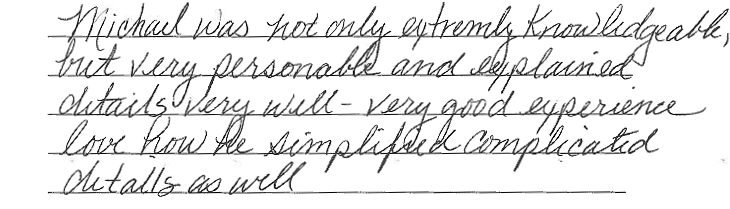 Michael was not only extremly knowledgeable,
but very personable and explained
details very well - very good experience
love how he simplified complicated
details as well